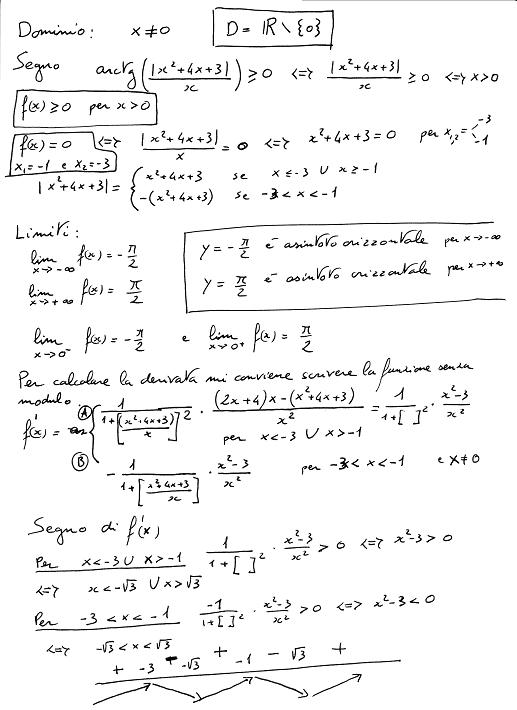 Dominio: x ≠ 0   D = ℝ \ {0}
Segno   arctg(|x²+4x+3|/x) ≥ 0 <=> |x²+4x+3|/x ≥ 0 <=> x>0
f(x) ≥ 0 per x>0
f(x) = 0 <=> |x²+4x+3|/x = 0 <=> x²+4x+3 = 0 per x₁,₂ = < -3 -1
x₁=-1 e x₂=-3
|x²+4x+3| = { x²+4x+3 se x≤-3 ∪ x≥-1
-(x²+4x+3) se -3<x<-1
Limiti:
lim x→-∞ f(x) = -π/2   y = -π/2 è asintoto orizzontale per x→-∞
lim x→+∞ f(x) = π/2   y = π/2 è asintoto orizzontale per x→+∞
lim x→0⁻ f(x) = -π/2 e lim x→0⁺ f(x) = π/2
Per calcolare la derivata mi conviene scrivere la funzione senza
modulo.
f'(x) = { Ⓐ 1/(1+[(x²+4x+3)/x]²) · ((2x+4)x-(x²+4x+3))/x² = 1/(1+[ ]²) · (x²-3)/x²
per x<-3 ∪ x>-1
Ⓑ -1/(1+[(x²+4x+3)/x]) · (x²-3)/x² per -3<x<-1 e x≠0
Segno di f'(x)
Per x<-3 ∪ x>-1   1/(1+[ ]²) · (x²-3)/x² > 0 <=> x²-3>0
<=> x<-√3 ∪ x>√3
Per -3<x<-1   -1/(1+[ ]²) · (x²-3)/x² > 0 <=> x²-3<0
<=> -√3<x<√3
+ -3 - -√3 + -1 - √3 +